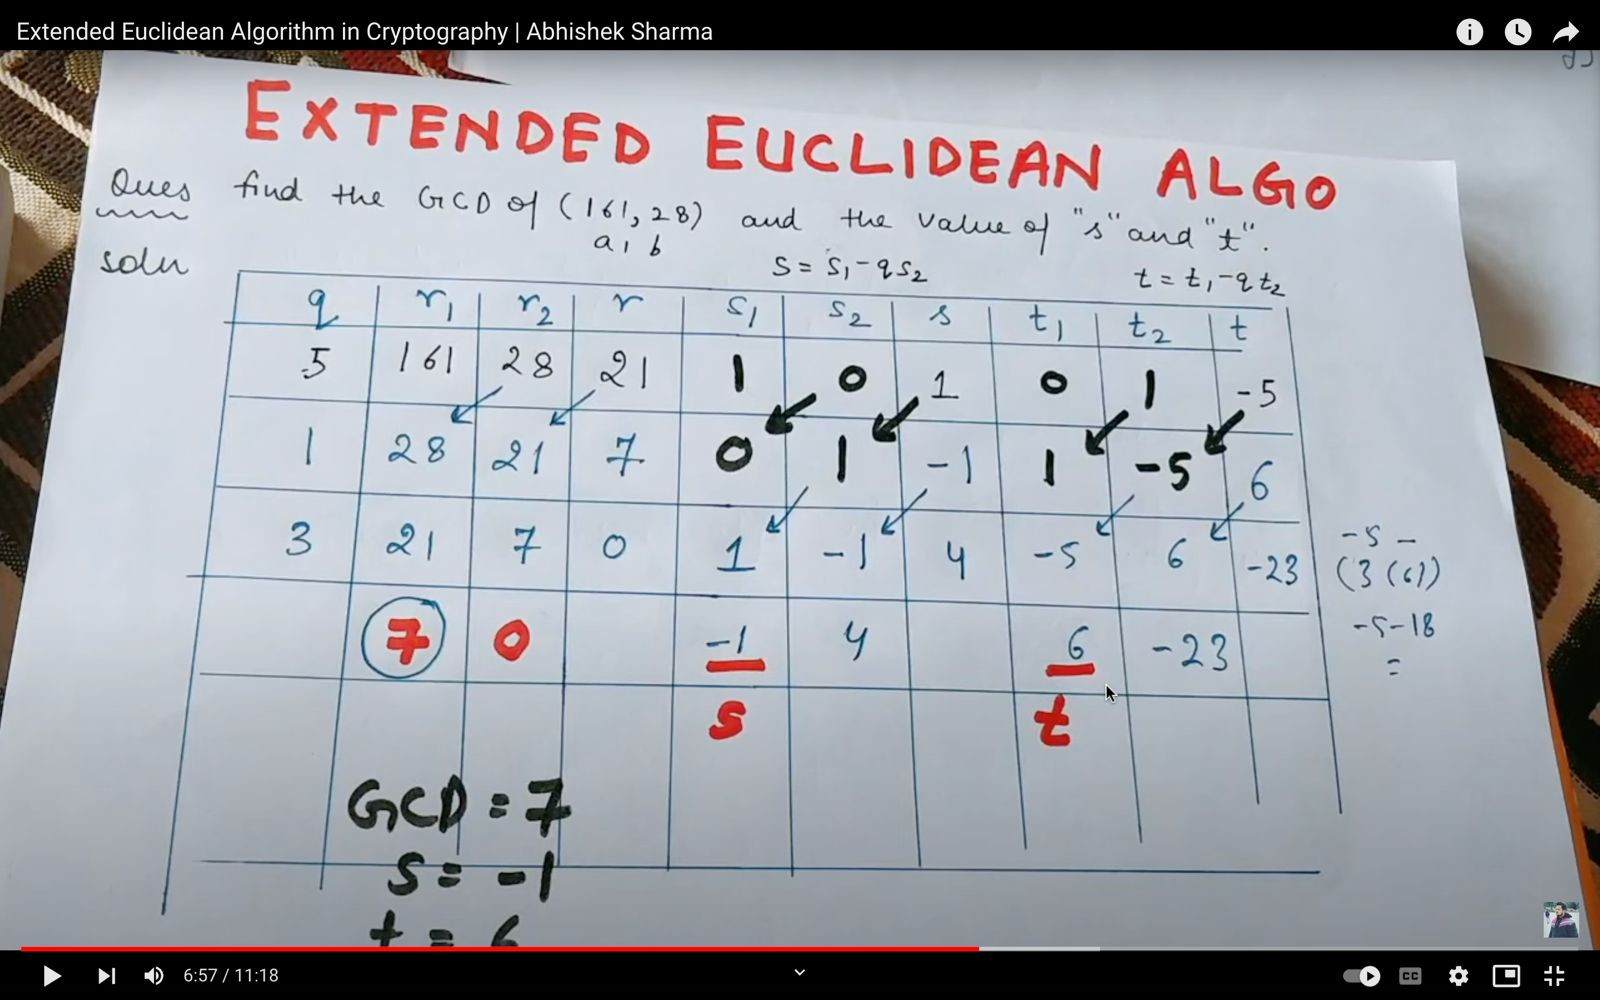 Extended Euclidean Algorithm in Cryptography | Abhishek Sharma
EXTENDED EUCLIDEAN ALGO
Ques find the GCD of (161, 28) and the value of "s" and "t".
a, b
soln
s = s₁ - q s₂
t = t₁ - q t₂
q r₁ r₂ r s₁ s₂ s t₁ t₂ t
5 161 28 21 1 0 1 0 1 -5
1 28 21 7 0 1 -1 1 -5 6
3 21 7 0 1 -1 4 -5 6 -23
7 0 -1 4 6 -23
s t
-5 -
(3 (6))
-5-18
=
GCD = 7
s = -1
t = 6
6:57 / 11:18
CC